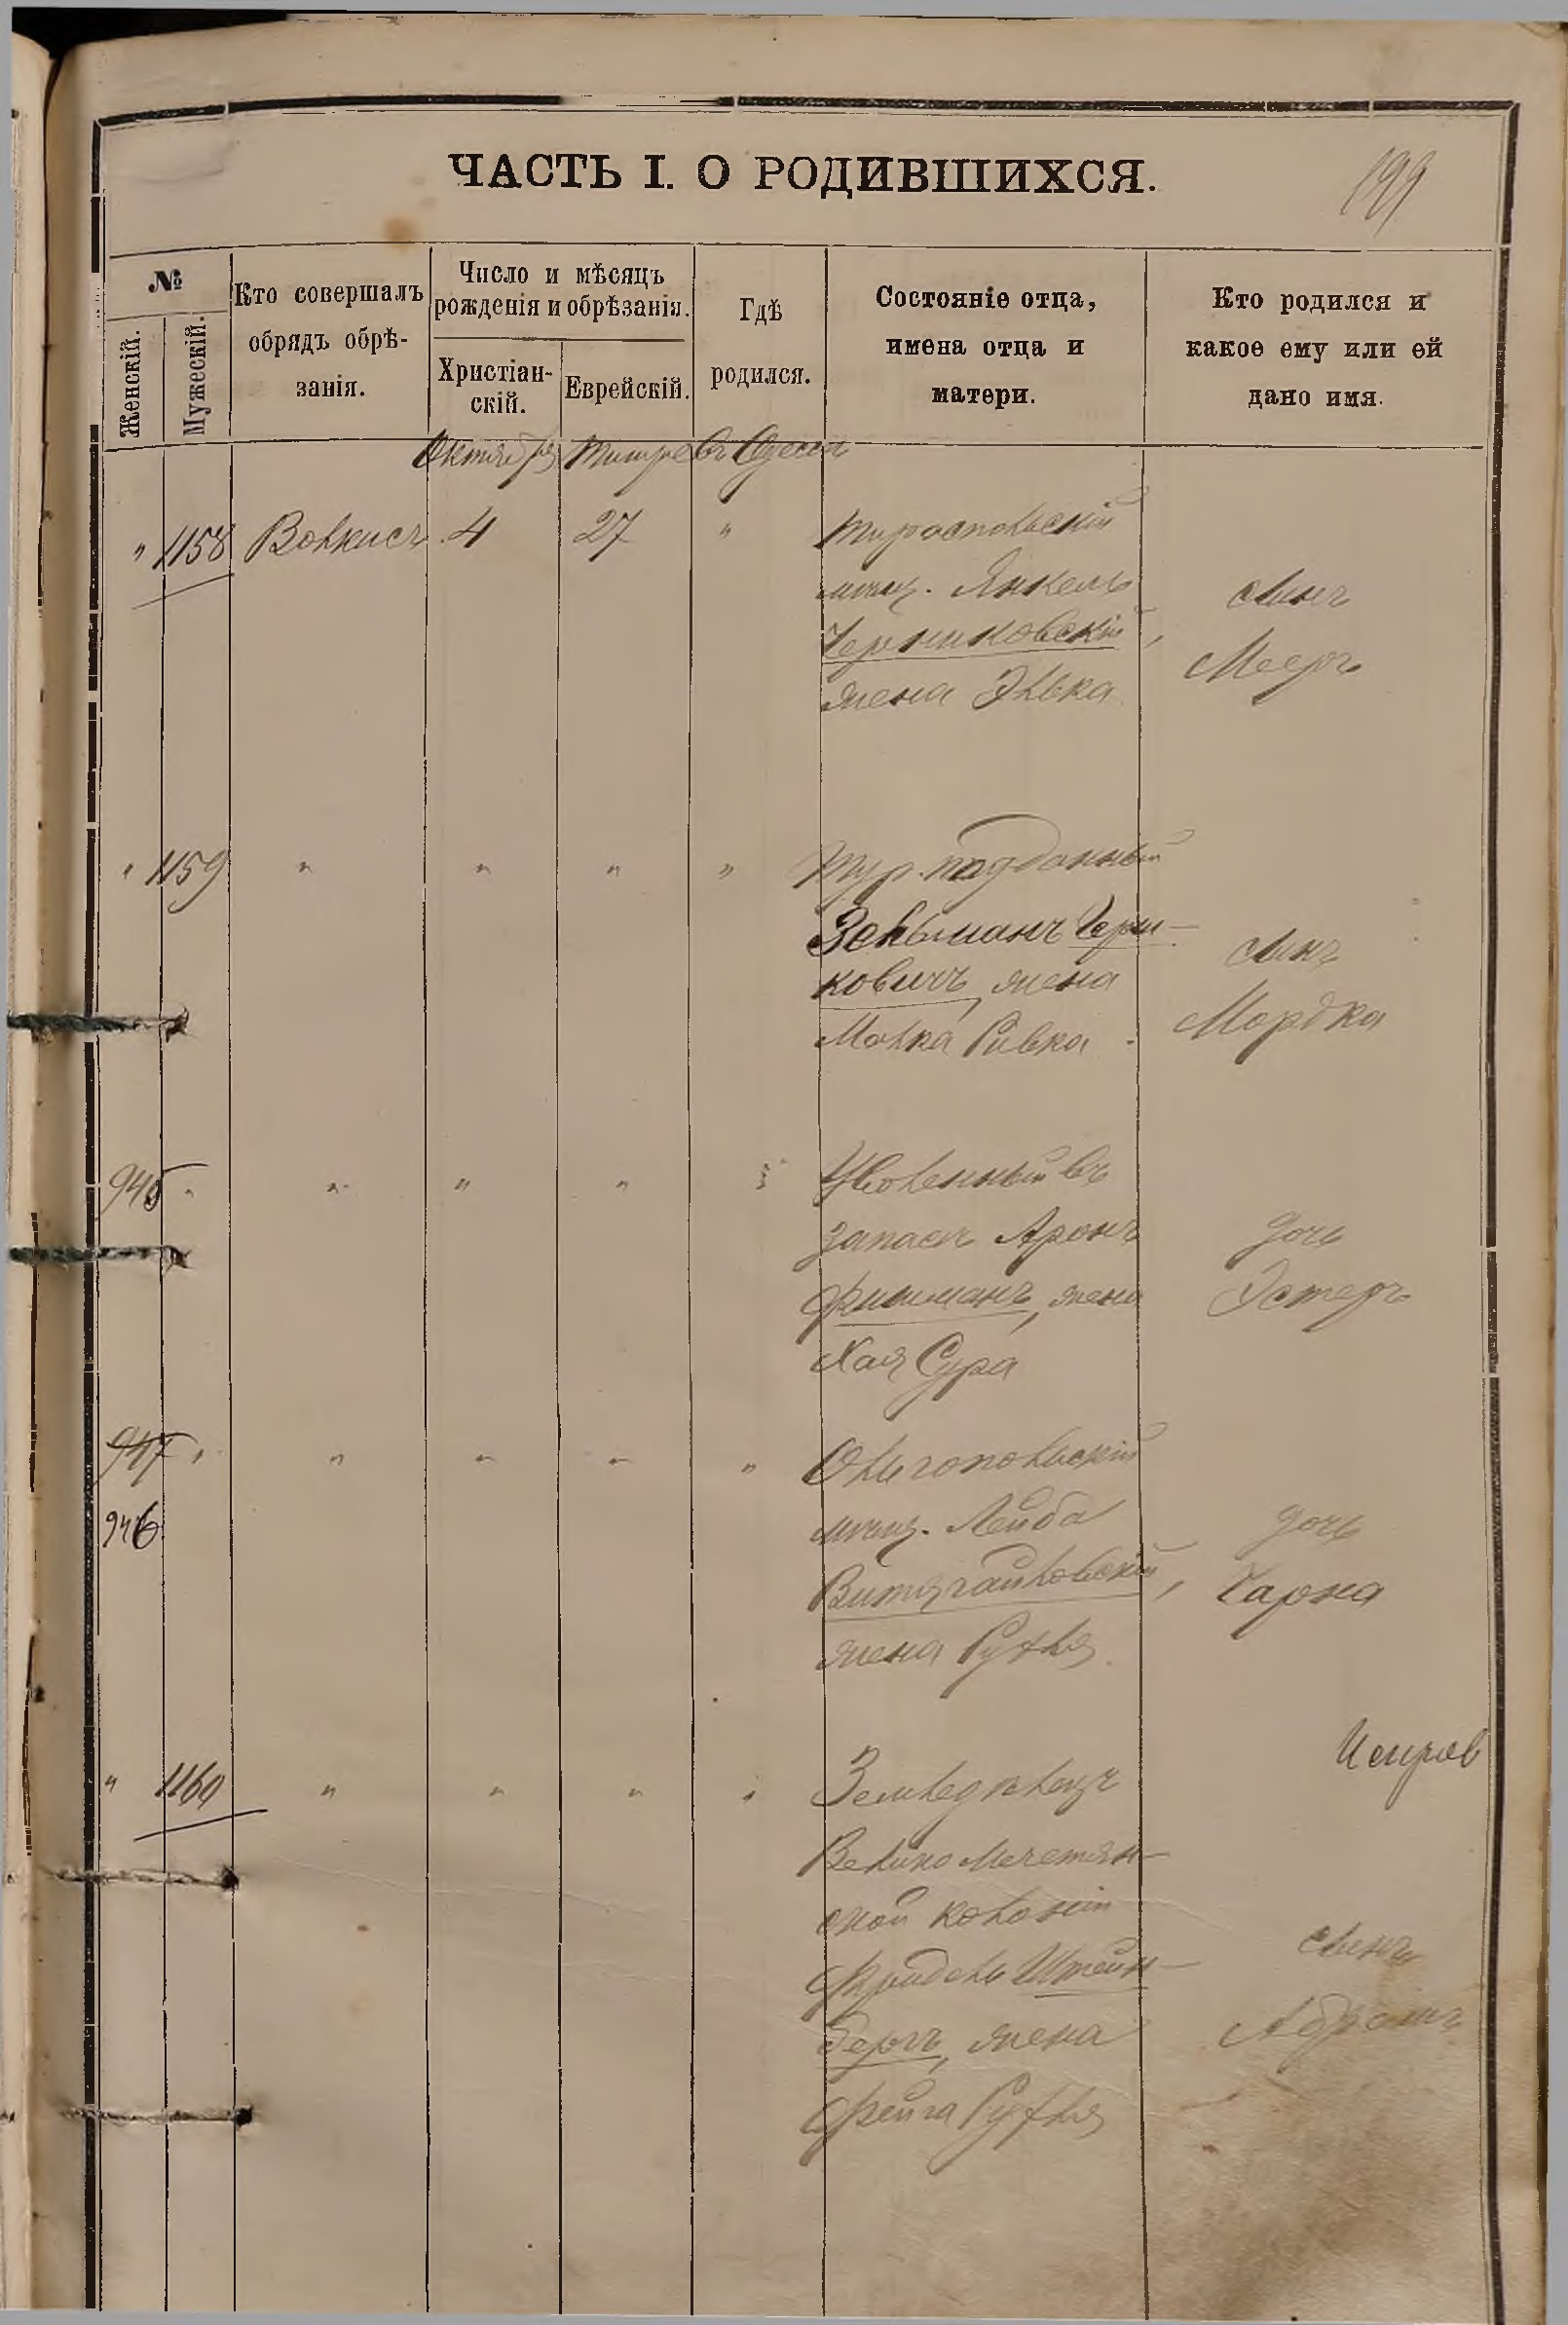 ЧАСТЬ I. О РОДИВШИХСЯ.
199
№
Женскій.
Мужескій.
Кто совершалъ
обрядъ обрѣ-
занія.
Число и мѣсяцъ
рожденія и обрѣзанія.
Христіан-
скій.
Еврейскій.
Гдѣ
родился.
Состояніе отца,
имена отца и
матери.
Кто родился и
какое ему или ей
дано имя.
Октября Тишре въ Одессѣ
" 1158 Волкисъ 4 27 " Тираспольскій
мѣщ. Янкель
Черниковскій,
жена Элька.
сынъ
Мееръ
" 1159 " " " " Тур. подданный
Зельманъ Чери-
ковичъ, жена
Малка Ривка
сынъ
Мордка
945 " " " " Уволенный въ
запасъ Аронъ
Фишманъ, жена
Хая Сура
дочь
Эстеръ
947 " " " " " Ольгопольскій
946
мѣщ. Лейба
Витягайловскій,
жена Рухля.
дочь
Чарна
" 1160 " " " " Земледѣлецъ
Велико Мечетян-
ской колоніи
Фридель Штейн-
бергъ, жена
Фейга Рухля
сынъ
Абрамъ